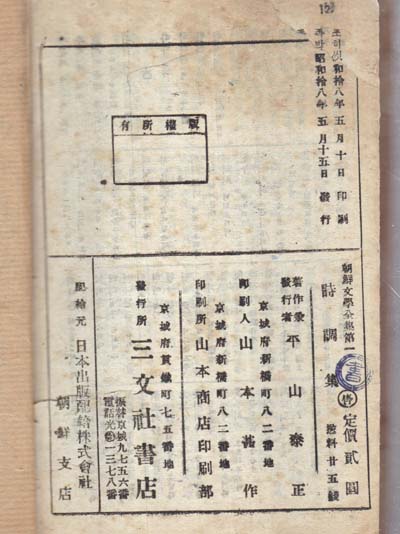 昭和拾八年五月十日印刷
昭和拾八年五月十五日發行
版權所有
朝鮮文學全集第一
詩調集
定價貳圓
送料廿五錢
著作兼發行者 平山泰正
京城府新橋町八二番地
印刷人 山本 作
京城府新橋町八二番地
印刷所 山本商店印刷部
京城府貫鐵町七五番地
發行所 三文社書店
振替京城九七五六番
電話光③一三七八番
配給元 日本出版配給株式會社
朝鮮支店